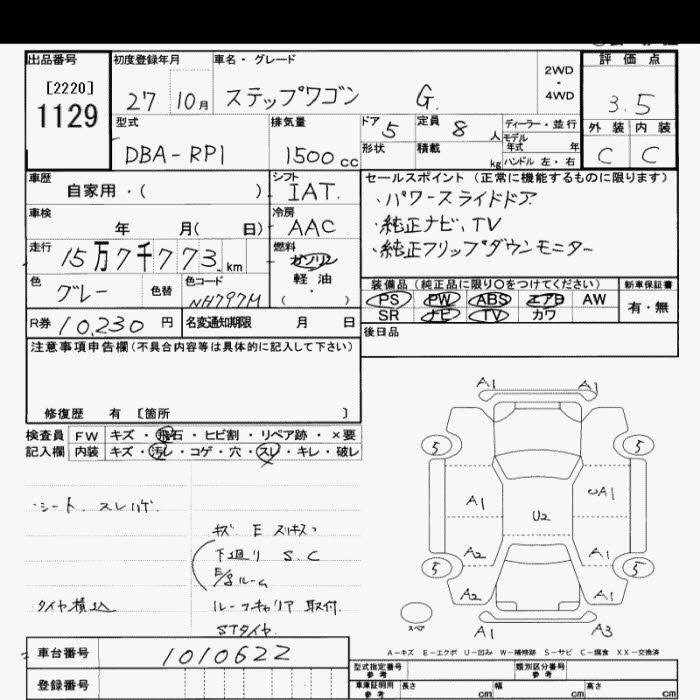 出品番号 初度登録年月 車名・グレード 評価点
[2220]
1129
27 10月 ステップワゴン G. 2WD・4WD 3.5
型式 排気量 ドア 5 定員 8人 ディーラー・並行 外装 内装
モデル年式 年
DBA-RP1 1500cc 形状 積載 kg ハンドル 左・右 C C
車歴 シフト セールスポイント(正常に機能するものに限ります)
自家用・( ) IAT. ・パワースライドドア
車検 冷房 ・純正ナビ、TV
年 月( 日) AAC ・純正フリップダウンモニター
走行 15万7千773.km 燃料 ガソリン
軽油
・( )
色 グレー 色替 色コード NH797M
装備品(純正品に限り○をつけてください) 新車保証書
PS PW ABS エアB AW 有・無
SR ナビ TV カワ
R券 10,230円 名変通知期限 月 日 後日品
注意事項申告欄(不具合内容等は具体的に記入して下さい)
修復歴 有 [箇所 ]
検査員 FW キズ・飛石・ヒビ割・リペア跡・×要
記入欄 内装 キズ・汚レ・コゲ・穴・スレ・キレ・破レ
・シート、スレ
キズ E
下廻り S.C
E/gルーム
タイヤ積込 ルーフキャリア取付.
STタイヤ.
A1 A1
5 5
A1 A1
U2
A2 A1
5 5
A2 A1
スペア
A1 A3
A-キズ E-エクボ U-凹み W-補修跡 S-サビ C-腐食 XX-交換済
車台番号 1010622
登録番号
型式指定番号 参考 類別区分番号 参考
車庫証明用 参考 長さ cm 幅 cm 高さ cm